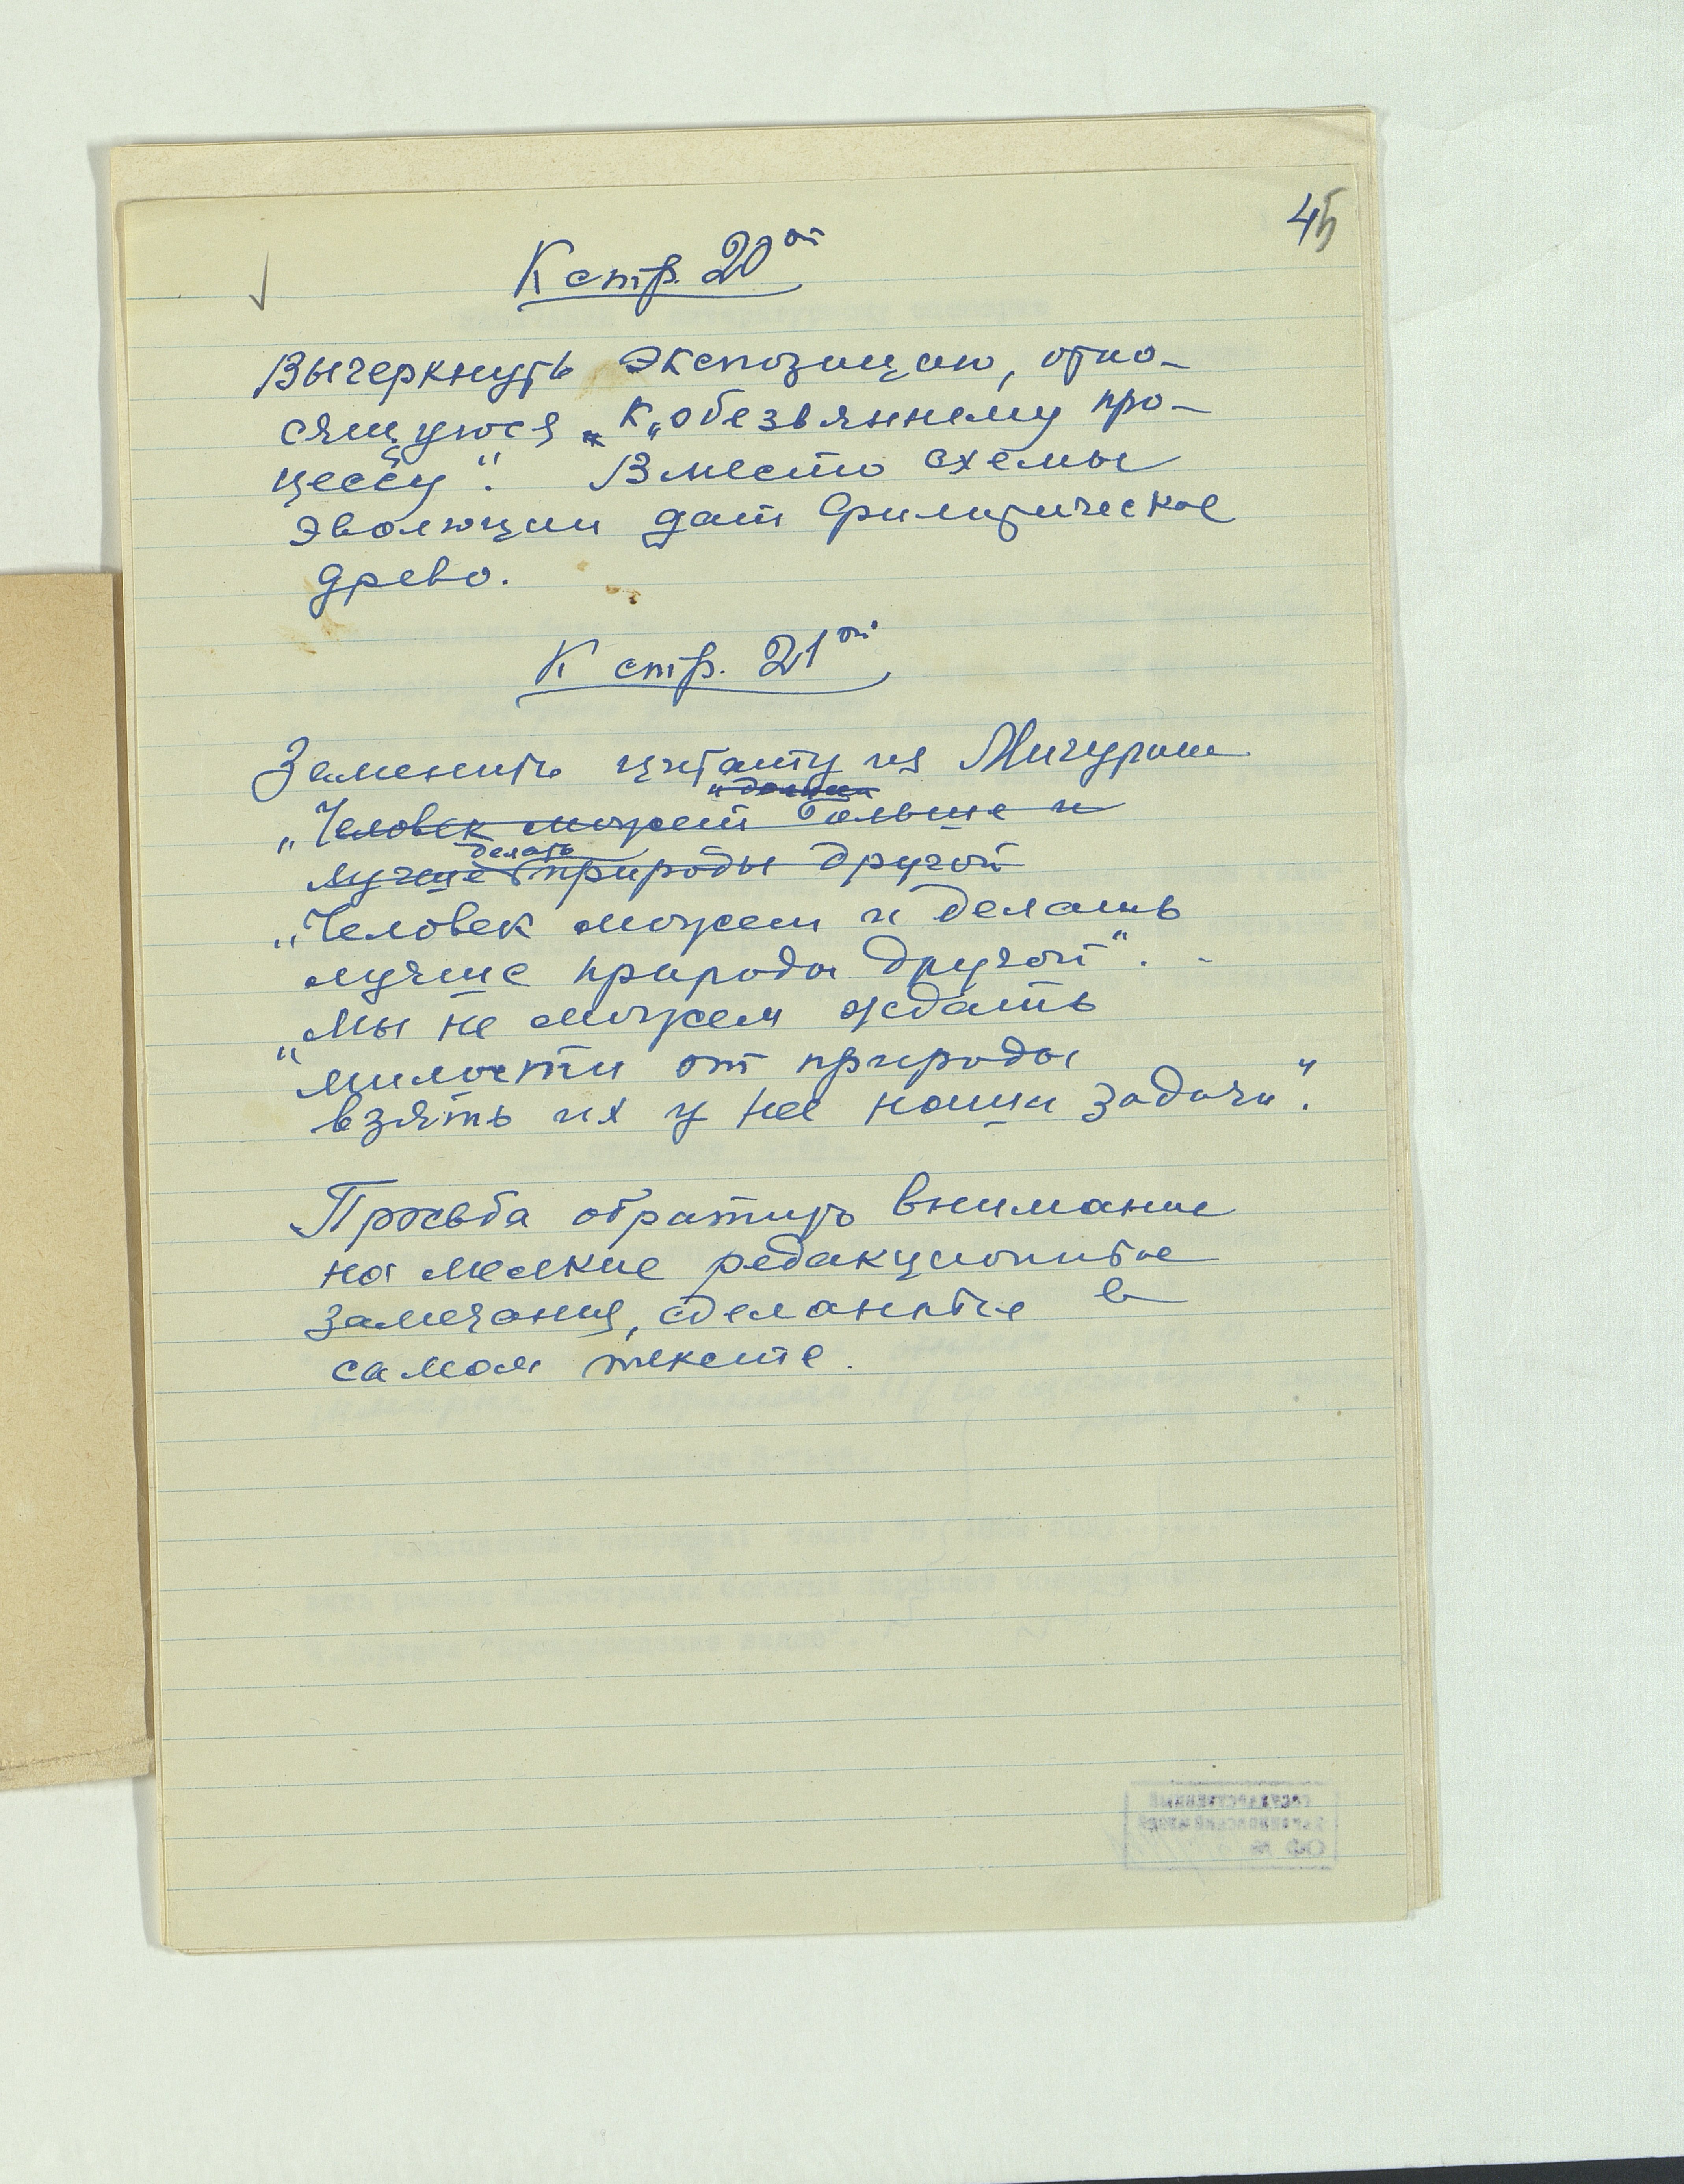 45
К стр. 20ой
Вычеркнуть экспозицию, отно-
сящуюся к „обезьяннему про-
цессу". Вместо схемы
эволюции дать филитическое
древо.
К стр. 21ой
Заменить цитату из Мичурина
„Человек может больше и
лучше делать природы другой
„Человек может и делать
лучше природы другой".
„Мы не можем ждать
милости от природы
взять их у неё наша задача".
Просьба обратить внимание
на мелкие редакционные
замечания, сделанные в
самом тексте.